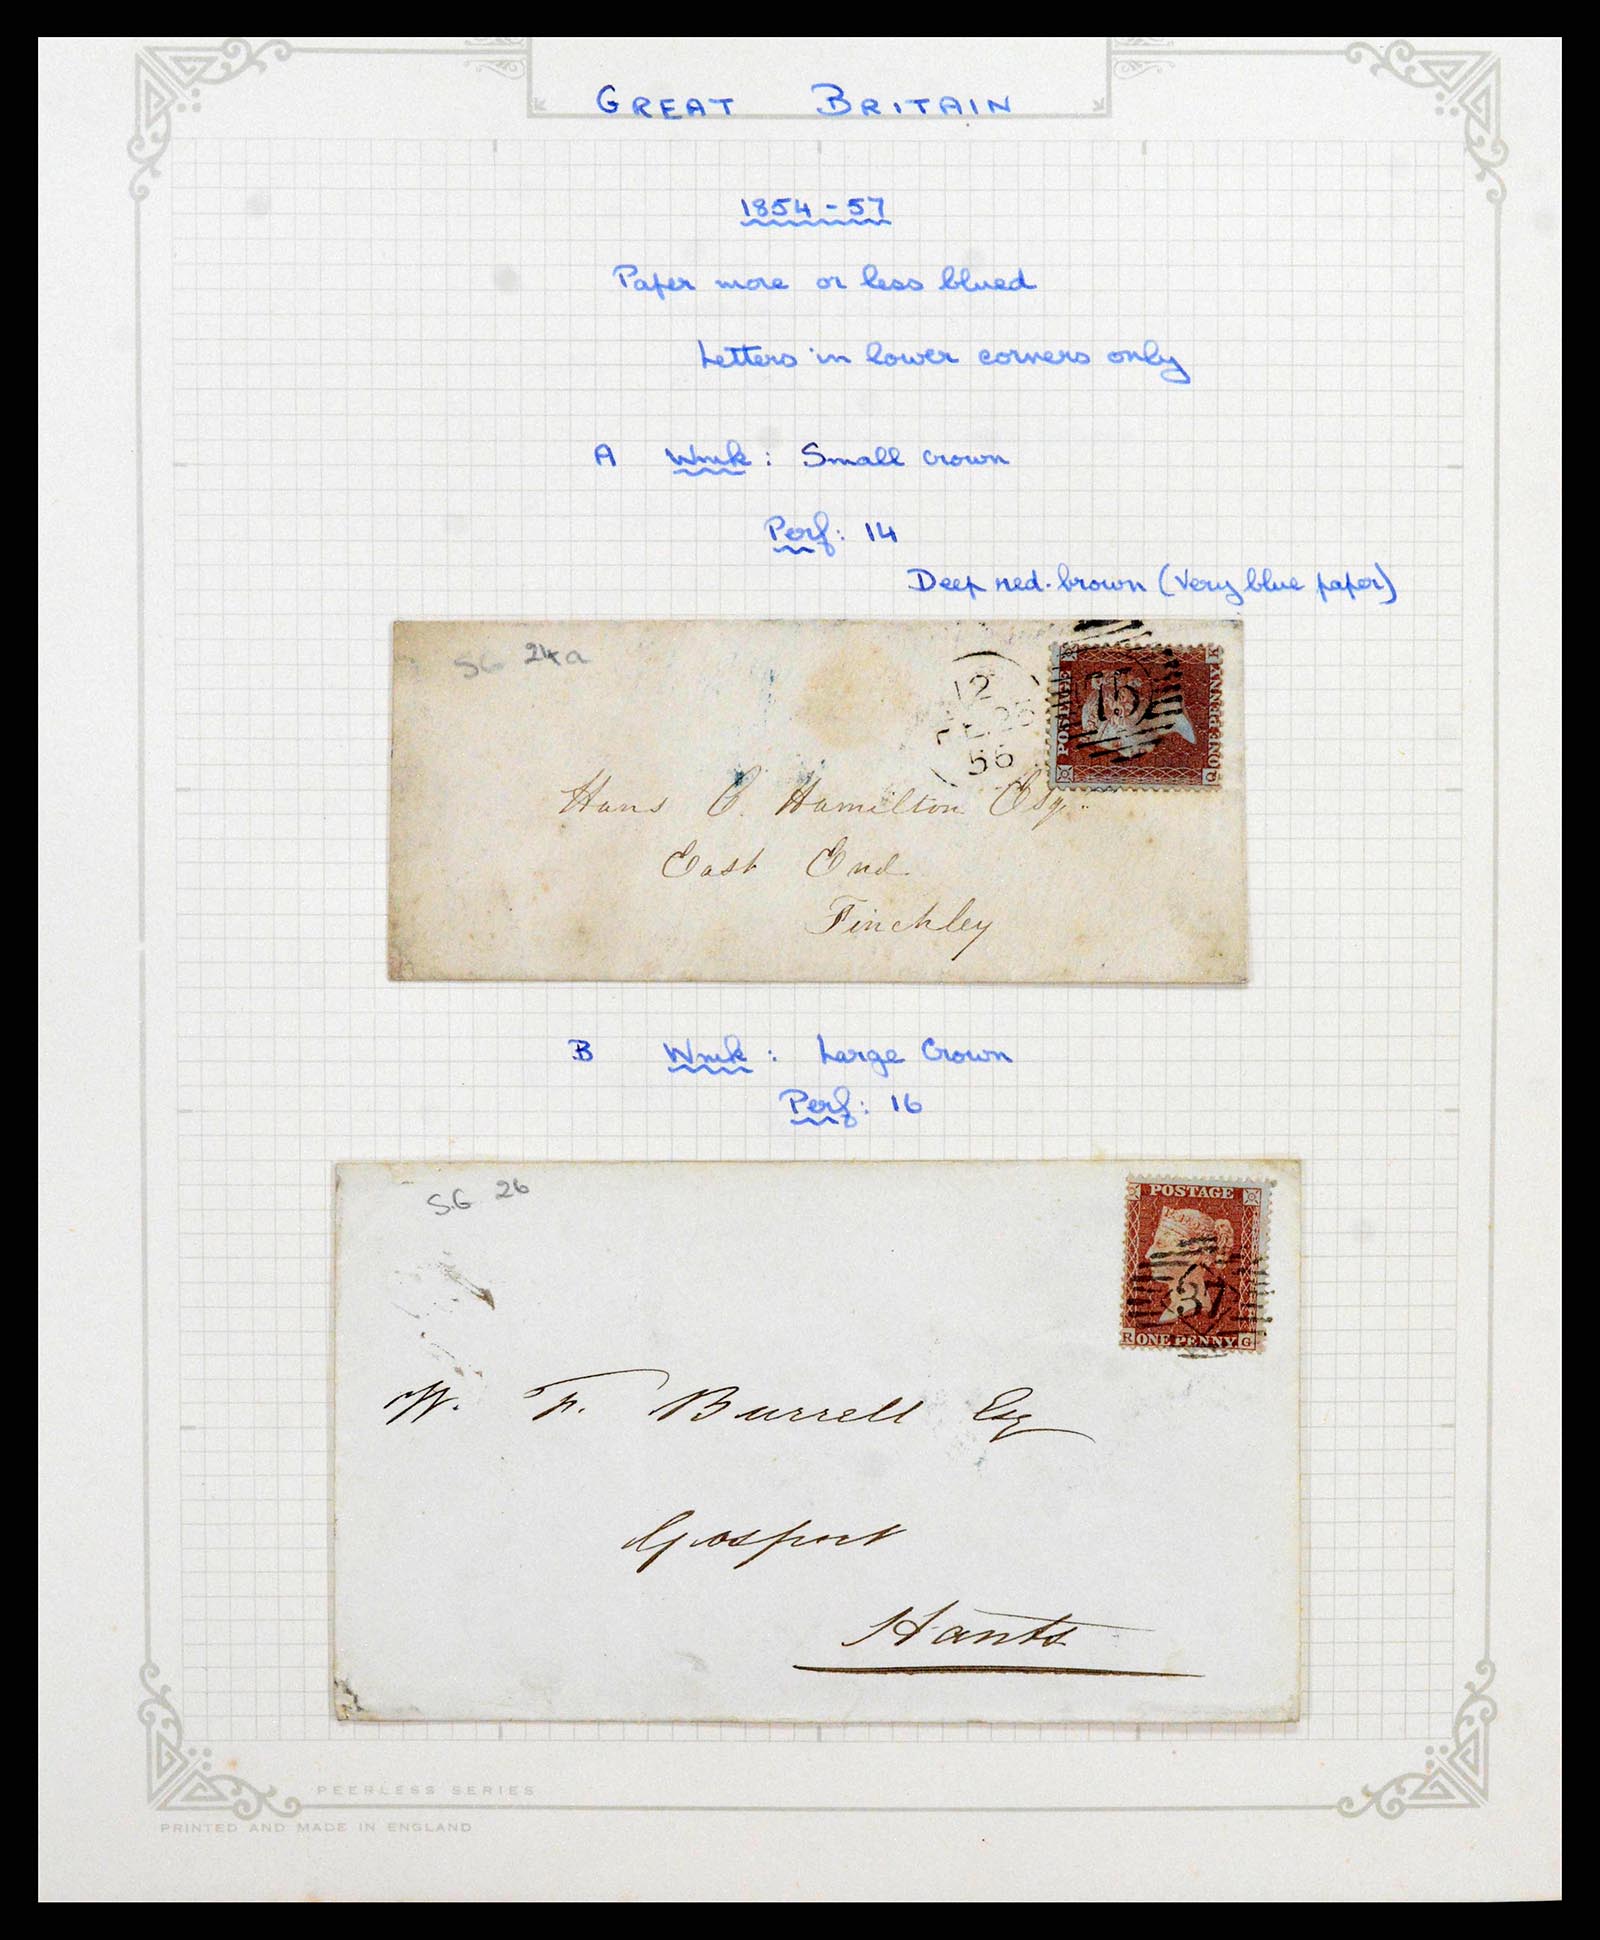 GREAT BRITAIN
1854-57
Paper more or less blued
Letters in lower corners only
A Wmk: Small crown
Perf: 14
Deep red-brown (Very blue paper)
SG 24a
12
56
POSTAGE
15
ONE PENNY
K
Q
Hans C. Hamilton Esq.
East End
Finchley
B Wmk: Large Crown
Perf: 16
S.G 26
POSTAGE
37
R ONE PENNY G
W. F. Burrell Esq
Gosport
Hants
PEERLESS SERIES
PRINTED AND MADE IN ENGLAND